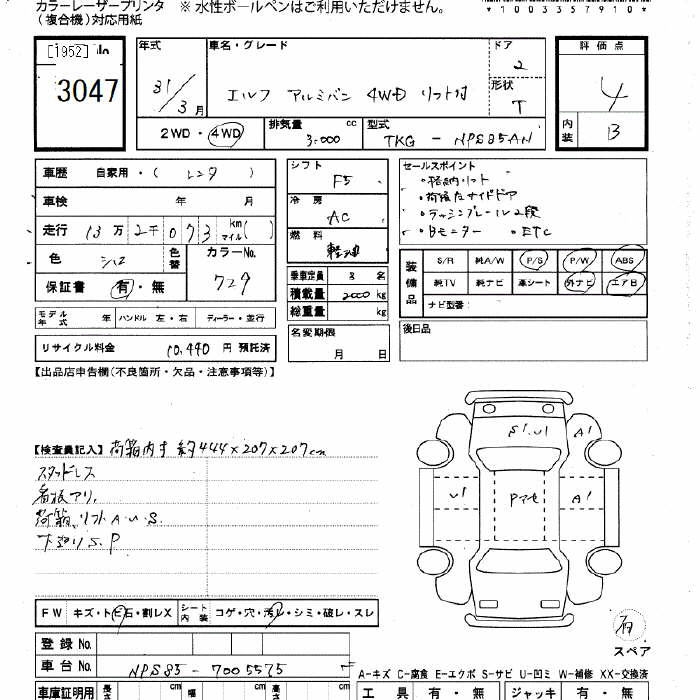 カラーレーザープリンタ ※ 水性ボールペンはご利用いただけません。
(複合機)対応用紙
*1003357910*
[1952]
3047
年式 31/3月
車名・グレード
エルフ アルミバン 4WD リフト付
ドア 2
形状 T
2WD・4WD
排気量 3000 cc
型式 TKG - NPS85AN
評価点 4
内装 B
車歴 自家用・( レンタ )
車検 年 月
走行 13万2千073 km マイル( )
色 シロ 色替 カラーNo. 729
保証書 有・無
シフト F5
冷房 AC
燃料 軽油
乗車定員 3 名
積載量 2000 kg
総重量 kg
セールスポイント
・格納リフト
・荷箱左サイドドア
・ラッシングレール2段
・Bモニター ・ETC
装備品
S/R 純A/W P/S P/W ABS
純TV 純ナビ 革シート 外ナビ エアB
ナビ型番:
モデル年式 年 ハンドル 左・右 ディーラー・並行
名変期限 月 日
後日品
リサイクル料金 10,440 円 預託済
【出品店申告欄(不良箇所・欠品・注意事項等)】
【検査員記入】 荷箱内寸 約444×207×207cm
スタッドレス
看板アリ,
荷箱,リフトA.U.S.
下廻りS.P
S1.U1 A1
U1 Pマセ A1
FW キズ・トビ石・割レX シート内装 コゲ・穴・汚レ・シミ・破レ・スレ
有
スペア
登録No.
車台No. NPS85-7005575
A-キズ C-腐食 E-エクボ S-サビ U-凹ミ W-補修 XX-交換済
車庫証明用 長さ cm 幅 cm 高さ cm
工具 有・無 ジャッキ 有・無